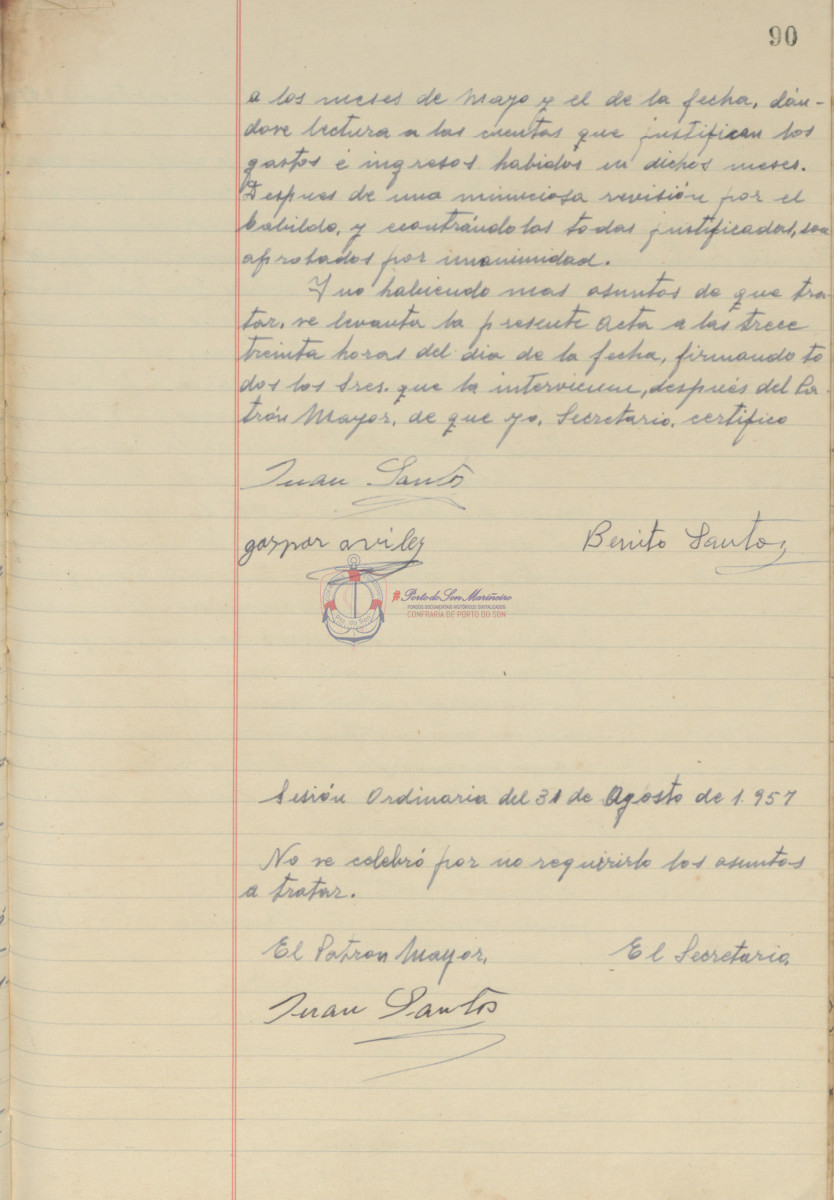 90
a los meses de Mayo y el de la fecha, dán-
dose lectura a las cuentas que justifican los
gastos é ingresos habidos en dichos meses.
Despues de una minuciosa revisión por el
Cabildo, y econtrándolas todas justificadas, son
aprobados por unanimidad.
Y no habiendo mas asuntos de que tra-
tar, se levanta la presente Acta a las trece
treinta horas del dia de la fecha, firmando to
dos los Sres. que la intervienen, después del Pa-
trón Mayor, de que yo, Secretario, certifico
Juan Santos
gaspar aviles
Benito Santos
Porto do Son Mariñeiro
FONDOS DOCUMENTAIS HISTÓRICOS DIXITALIZADOS
CONFRARÍA DE PORTO DO SON
Sesión Ordinaria del 31 de Agosto de 1.957
No se celebró por no requerirlo los asuntos
a tratar.
El Patron Mayor,
El Secretario,
Juan Santos